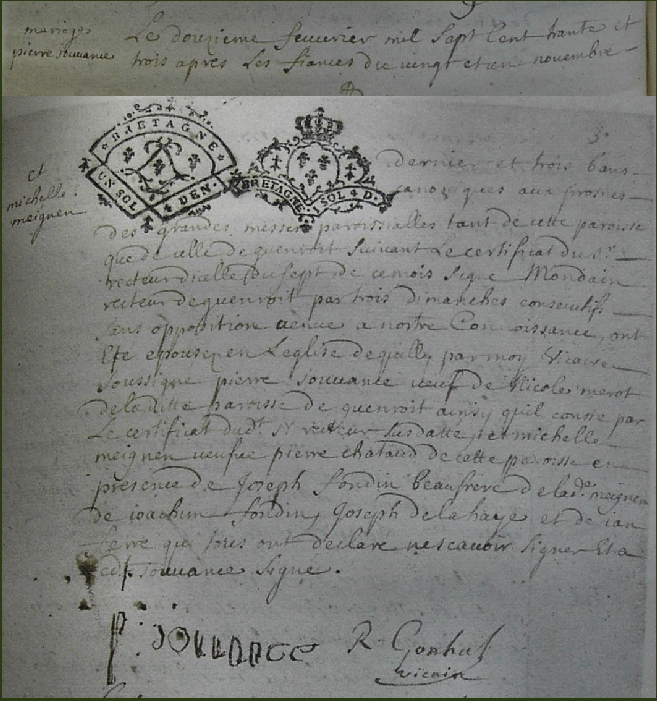 mariages
pierre souuance
Le douzieme feuurier mil sept Cent trante et
trois apres Les fiances du vingt et en nouembre
BRETAGNE
UN SOL
DEN.
BRETAGNE
SOL
D.
3.
et
michelle
meignen
dernier et trois bans
canoniques aux prosnes
des grandes messes paroissialles tant de cette paroisse
que de celle de quenroit suiuant Le certificat du Sr
recteur dicelle du sept de ce mois signe Mondain
recteur de quenroit par trois dimanches consecutifs
sans opposition venue a nostre Connoissance, ont
Ete epousez en Leglise de quilly par moy vicaire
soussigne pierre souuance ueuf de Nicole merot
de laditte paroisse de quenroit ainsy quil conste par
Le certificat dudt Sr recteur susdatte, et michelle
meignen ueufue pierre chataud de cette paroisse en
presence de Joseph fondin beaufrere de lade meignen
de ioachim fondin, Joseph delahaye et de ian
ferre qui tous ont declare ne scauoir signer Et a
ledt souuance signe.
p: souuance
R Gonhal
vicaire